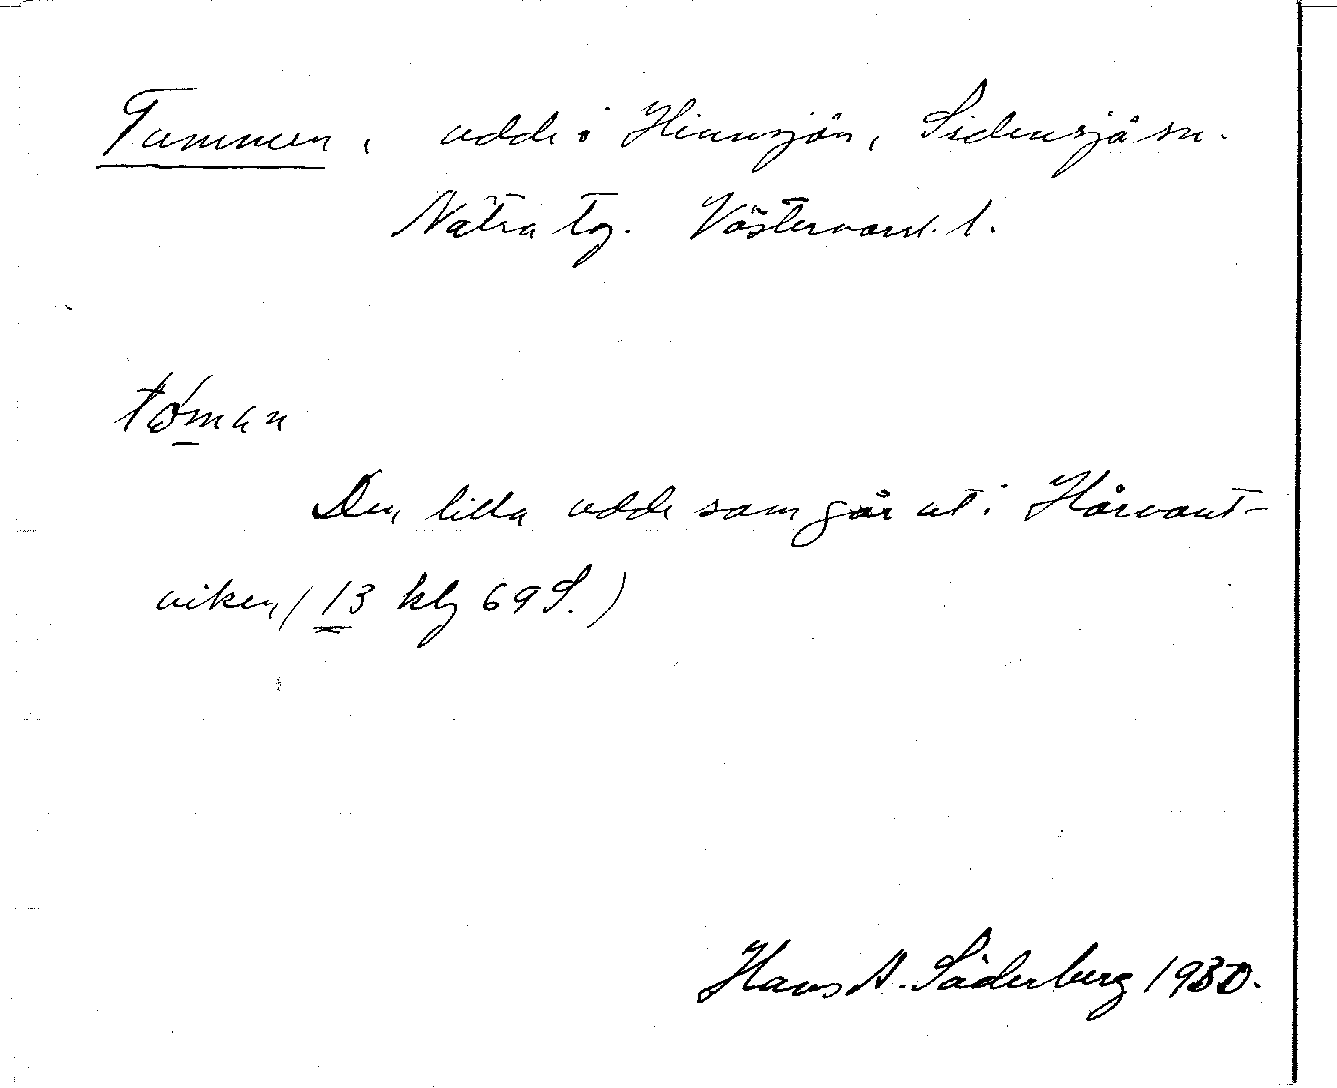 Tummen, udde i Hinnsjön, Sidensjö sn.
Nätra tg. Västernorrl. l.
tóman
Den lilla udde som går ut i Hårvant-
viken, (13 klg 69 S.)
Hans A. Söderberg 1930.